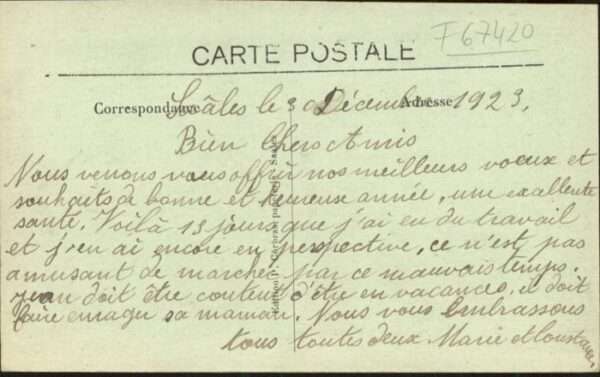 F67420
CARTE POSTALE
Correspondance Adresse
le 30 Décembre 1923.
Bien Chers Amis
Nous venons vous offrir nos meilleurs voeux et
souhaits de bonne et heureuse année, une exellente
santé. Voilà 13 jours que j'ai eu du travail
et j'en ai encore en perspective, ce n'est pas
amusant de marcher par ce mauvais temps.
Jean doit être content d'être en vacances, il doit
faire enrager sa maman. Nous vous embrassons
tous toutes deux Marie et Constance.
Edition